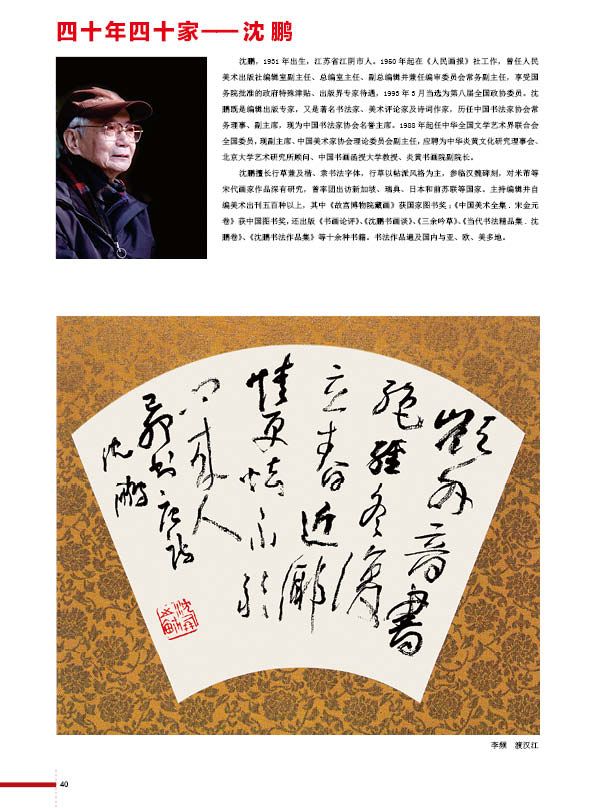 四十年四十家——沈 鹏
沈鹏，1931 年出生，江苏省江阴市人。1950 年起在《人民画报》社工作，曾任人民
美术出版社编辑室副主任、总编室主任、副总编辑并兼任编审委员会常务副主任，享受国
务院批准的政府特殊津贴、出版界专家待遇，1993 年 3 月当选为第八届全国政协委员。沈
鹏既是编辑出版专家，又是著名书法家、美术评论家及诗词作家，历任中国书法家协会常
务理事、副主席，现为中国书法家协会名誉主席。1988 年起任中华全国文学艺术界联合会
全国委员，现副主席、中国美术家协会理论委员会副主任，应聘为中华炎黄文化研究理事会、
北京大学艺术研究所顾问、中国书画函授大学教授、炎黄书画院副院长。
沈鹏擅长行草兼及楷、隶书法字体，行草以帖派风格为主，参临汉魏碑刻，对米芾等
宋代画家作品深有研究，曾率团出访新加坡、瑞典、日本和前苏联等国家。主持编辑并自
编美术出刊五百种以上，其中《故宫博物院藏画》获国家图书奖；《中国美术全集．宋金元
卷》获中国图书奖，还出版《书画论评》、《沈鹏书画谈》、《三余吟草》、《当代书法精品集．沈
鹏卷》、《沈鹏书法作品集》等十余种书籍。书法作品遍及国内与亚、欧、美多地。
嶺外音書
絕經冬復
立春近鄉
情更怯不敢
问来人
己卯书唐诗
沈鹏
李频 渡汉江
40